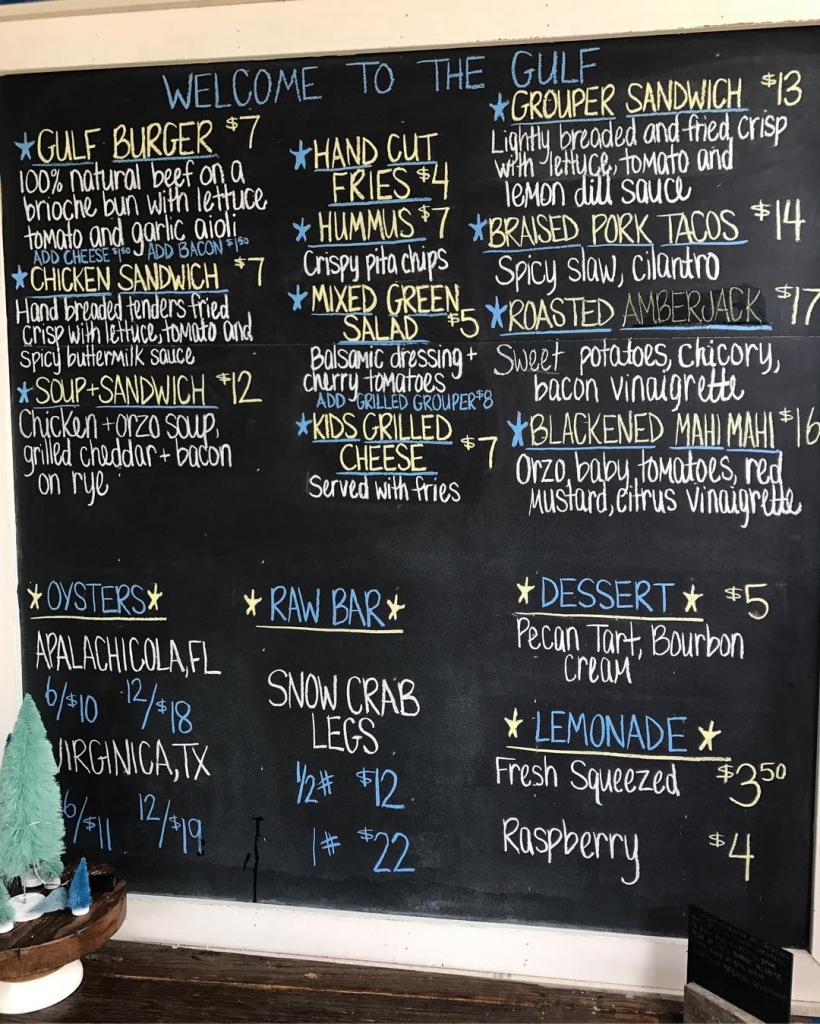 WELCOME TO THE GULF
GULF BURGER $7
100% natural beef on a
brioche bun with lettuce
tomato and garlic aioli
ADD CHEESE $1.50 ADD BACON $1.50
CHICKEN SANDWICH $7
Hand breaded tenders fried
crisp with lettuce, tomato and
spicy buttermilk sauce
SOUP+SANDWICH $12
Chicken + orzo soup,
grilled cheddar + bacon
on rye
HAND CUT
FRIES $4
HUMMUS $7
Crispy pita chips
MIXED GREEN
SALAD $5
Balsamic dressing +
cherry tomatoes
ADD GRILLED GROUPER $8
KIDS GRILLED
CHEESE $7
Served with fries
GROUPER SANDWICH $13
Lightly breaded and fried, crisp
with lettuce, tomato and
lemon dill sauce
BRAISED PORK TACOS $14
Spicy slaw, cilantro
ROASTED AMBERJACK $17
Sweet potatoes, chicory,
bacon vinaigrette
BLACKENED MAHI MAHI $16
Orzo, baby tomatoes, red
mustard, citrus vinaigrette
OYSTERS
APALACHICOLA, FL
6/$10 12/$18
VIRGINICA, TX
6/$11 12/$19
RAW BAR
SNOW CRAB
LEGS
1/2# $12
1# $22
DESSERT $5
Pecan Tart, Bourbon
Cream
LEMONADE
Fresh Squeezed $3.50
Raspberry $4